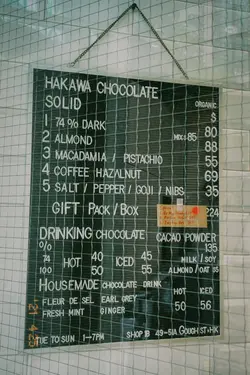 HAKAWA CHOCOLATE
SOLID ORGANIC $
1 74% DARK 80
2 ALMOND MIX: 85 88
3 MACADAMIA / PISTACHIO 55
4 COFFEE HAZALNUT 69
5 SALT / PEPPER / GOJI / NIBS 35
GIFT PACK/BOX 224
DRINKING CHOCOLATE CACAO POWDER
% 135
74 HOT 40 ICED 45 MILK / SOY
100 50 55 ALMOND / OAT
HOUSEMADE CHOCOLATE DRINK
FLEUR DE SEL EARL GREY HOT ICED
FRESH MINT GINGER 50 56
TUE TO SUN 1-7PM SHOP 1B 49-51A GOUGH ST·HK